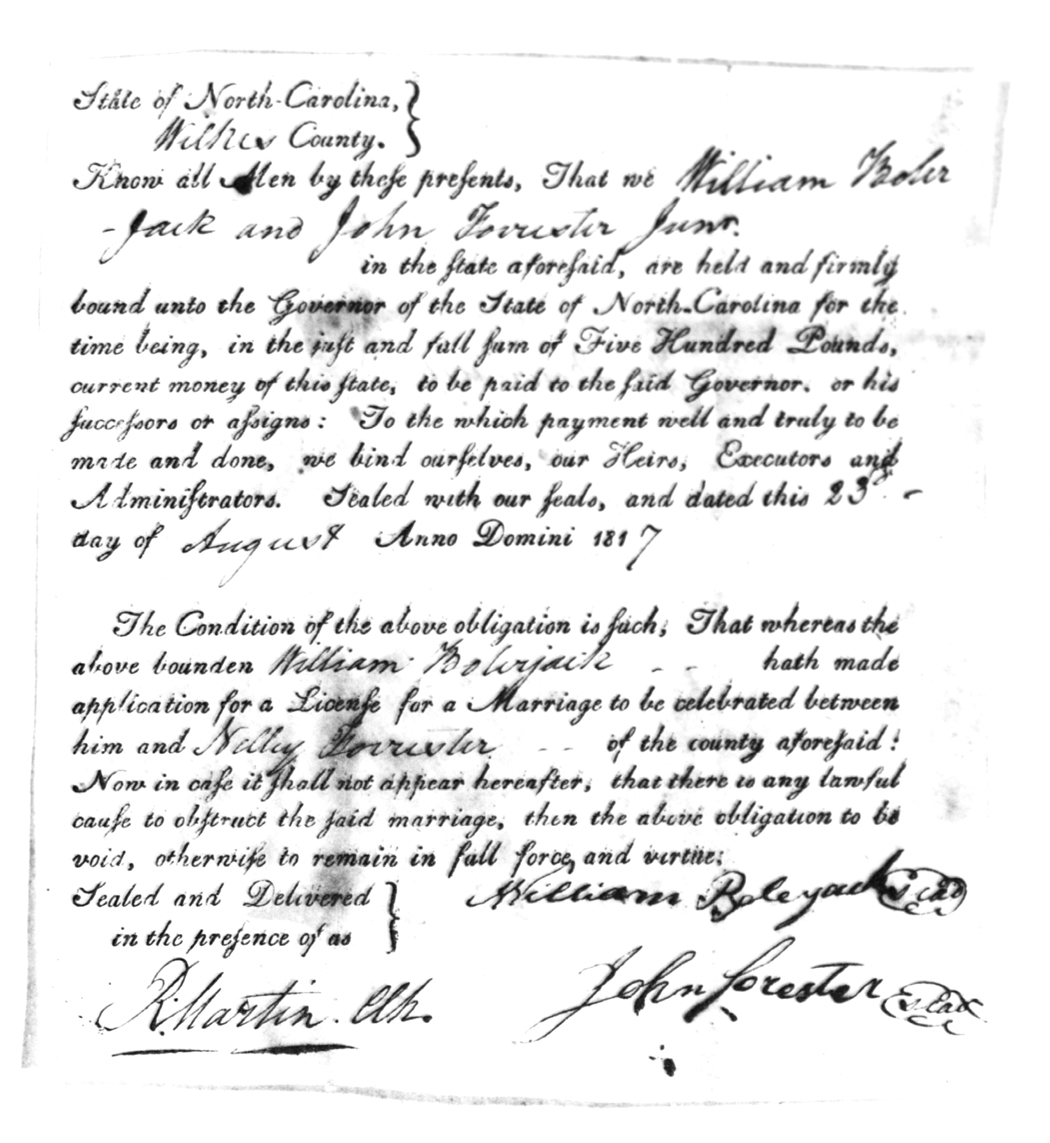 State of North-Carolina,
Wilkes County.
Know all Men by theſe preſents, That we William Boler
-Jack and John Forrester Junr.
in the ſtate aforeſaid, are held and firmly
bound unto the Governor of the State of North-Carolina for the
time being, in the juſt and full ſum of Five Hundred Pounds,
current money of this ſtate, to be paid to the ſaid Governor. or his
ſucceſsors or aſsigns: To the which payment well and truly to be
made and done, we bind ourſelves, our Heirs, Executors and
Adminiſtrators. Sealed with our ſeals, and dated this 23d. -
day of August Anno Domini 1817
The Condition of the above obligation is ſuch, That whereas the
above bounden William Bolerjack - - hath made
application for a Licenſe for a Marriage to be celebrated between
him and Nelley Forrester - - of the county aforeſaid:
Now in caſe it ſhall not appear hereafter, that there is any lawful
cauſe to obſtruct the ſaid marriage, then the above obligation to be
void, otherwiſe to remain in full force, and virtue:
Sealed and Delivered
in the preſence of us
William Boleyack Seal
John forester Seal
R. Martin. Clk.